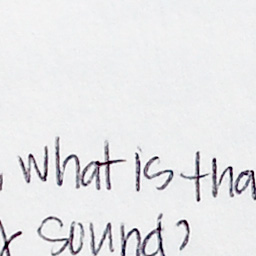 , what is tha
sound?